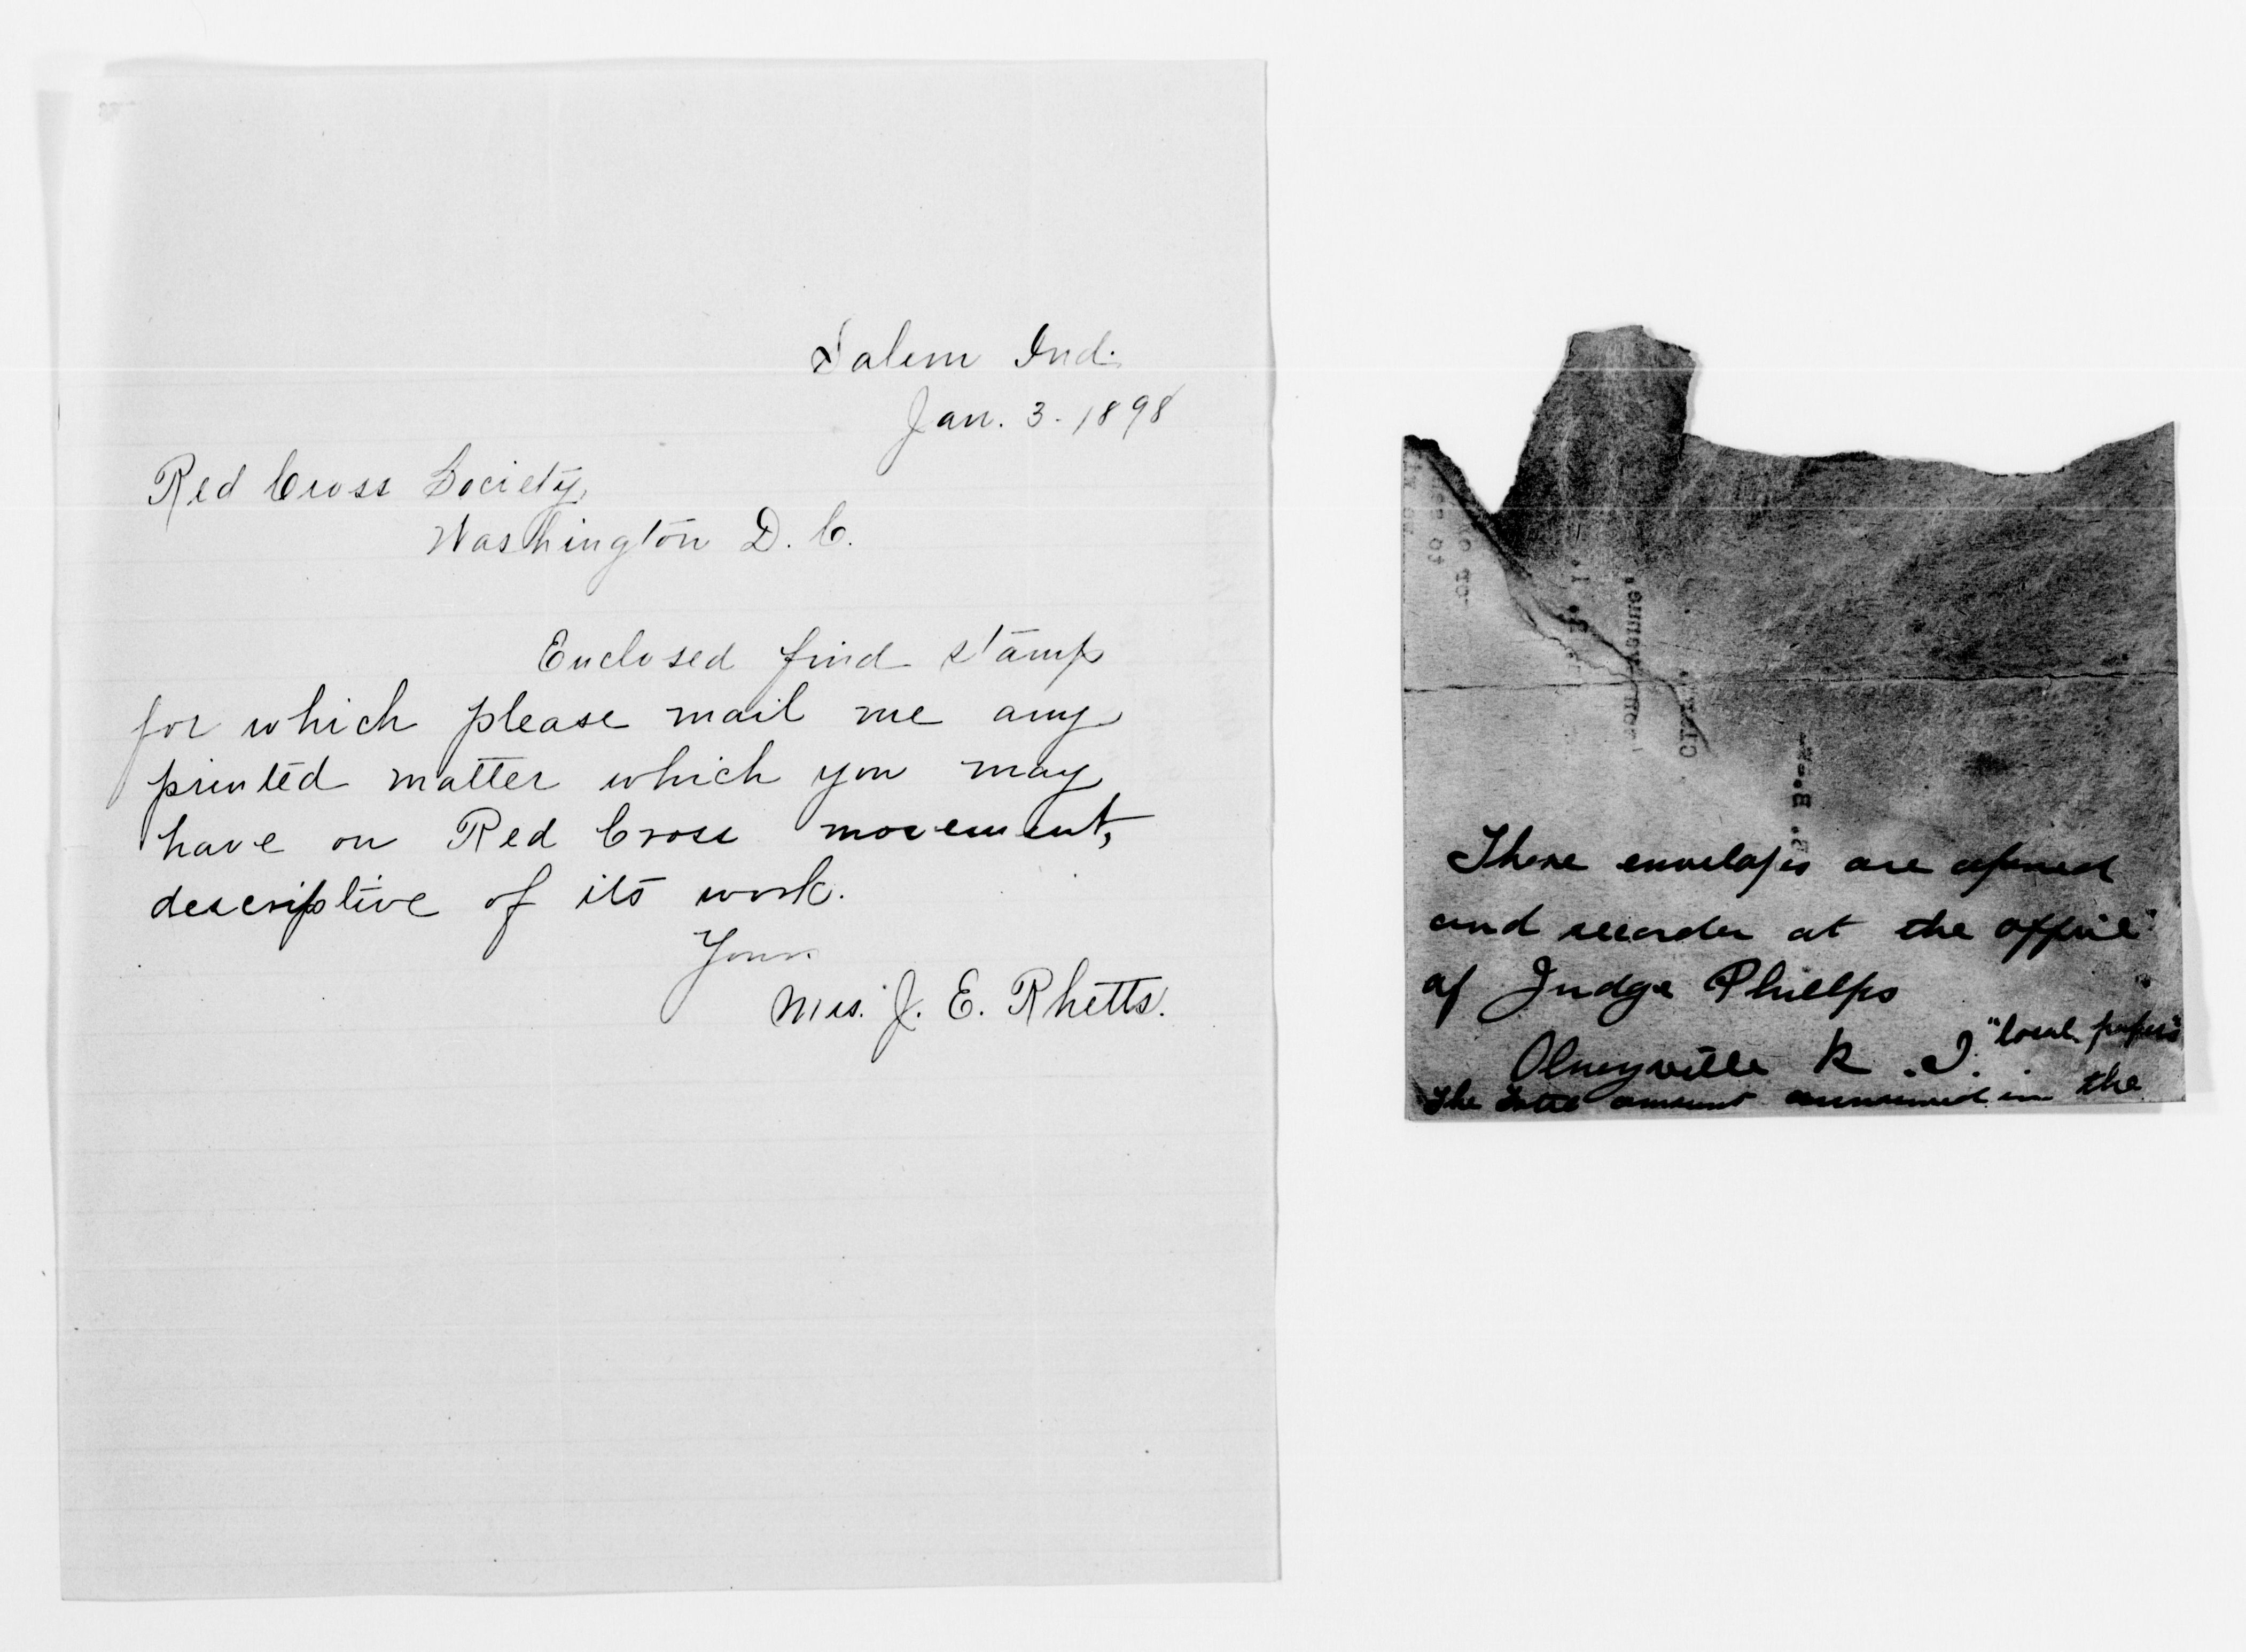 Salem Ind.
Jan. 3. 1898
Red Cross Society,
Washington D. C.
Enclosed find stamp
for which please mail me any
printed matter which you may
have on Red Cross movement,
descriptive of its work.
Yours
Mrs. J. E. Rhetts.
These envelopes are opened
and recorder at the office
of Judge Phillps
Olneyville R. I.
"local papers"
The total amount announced in the